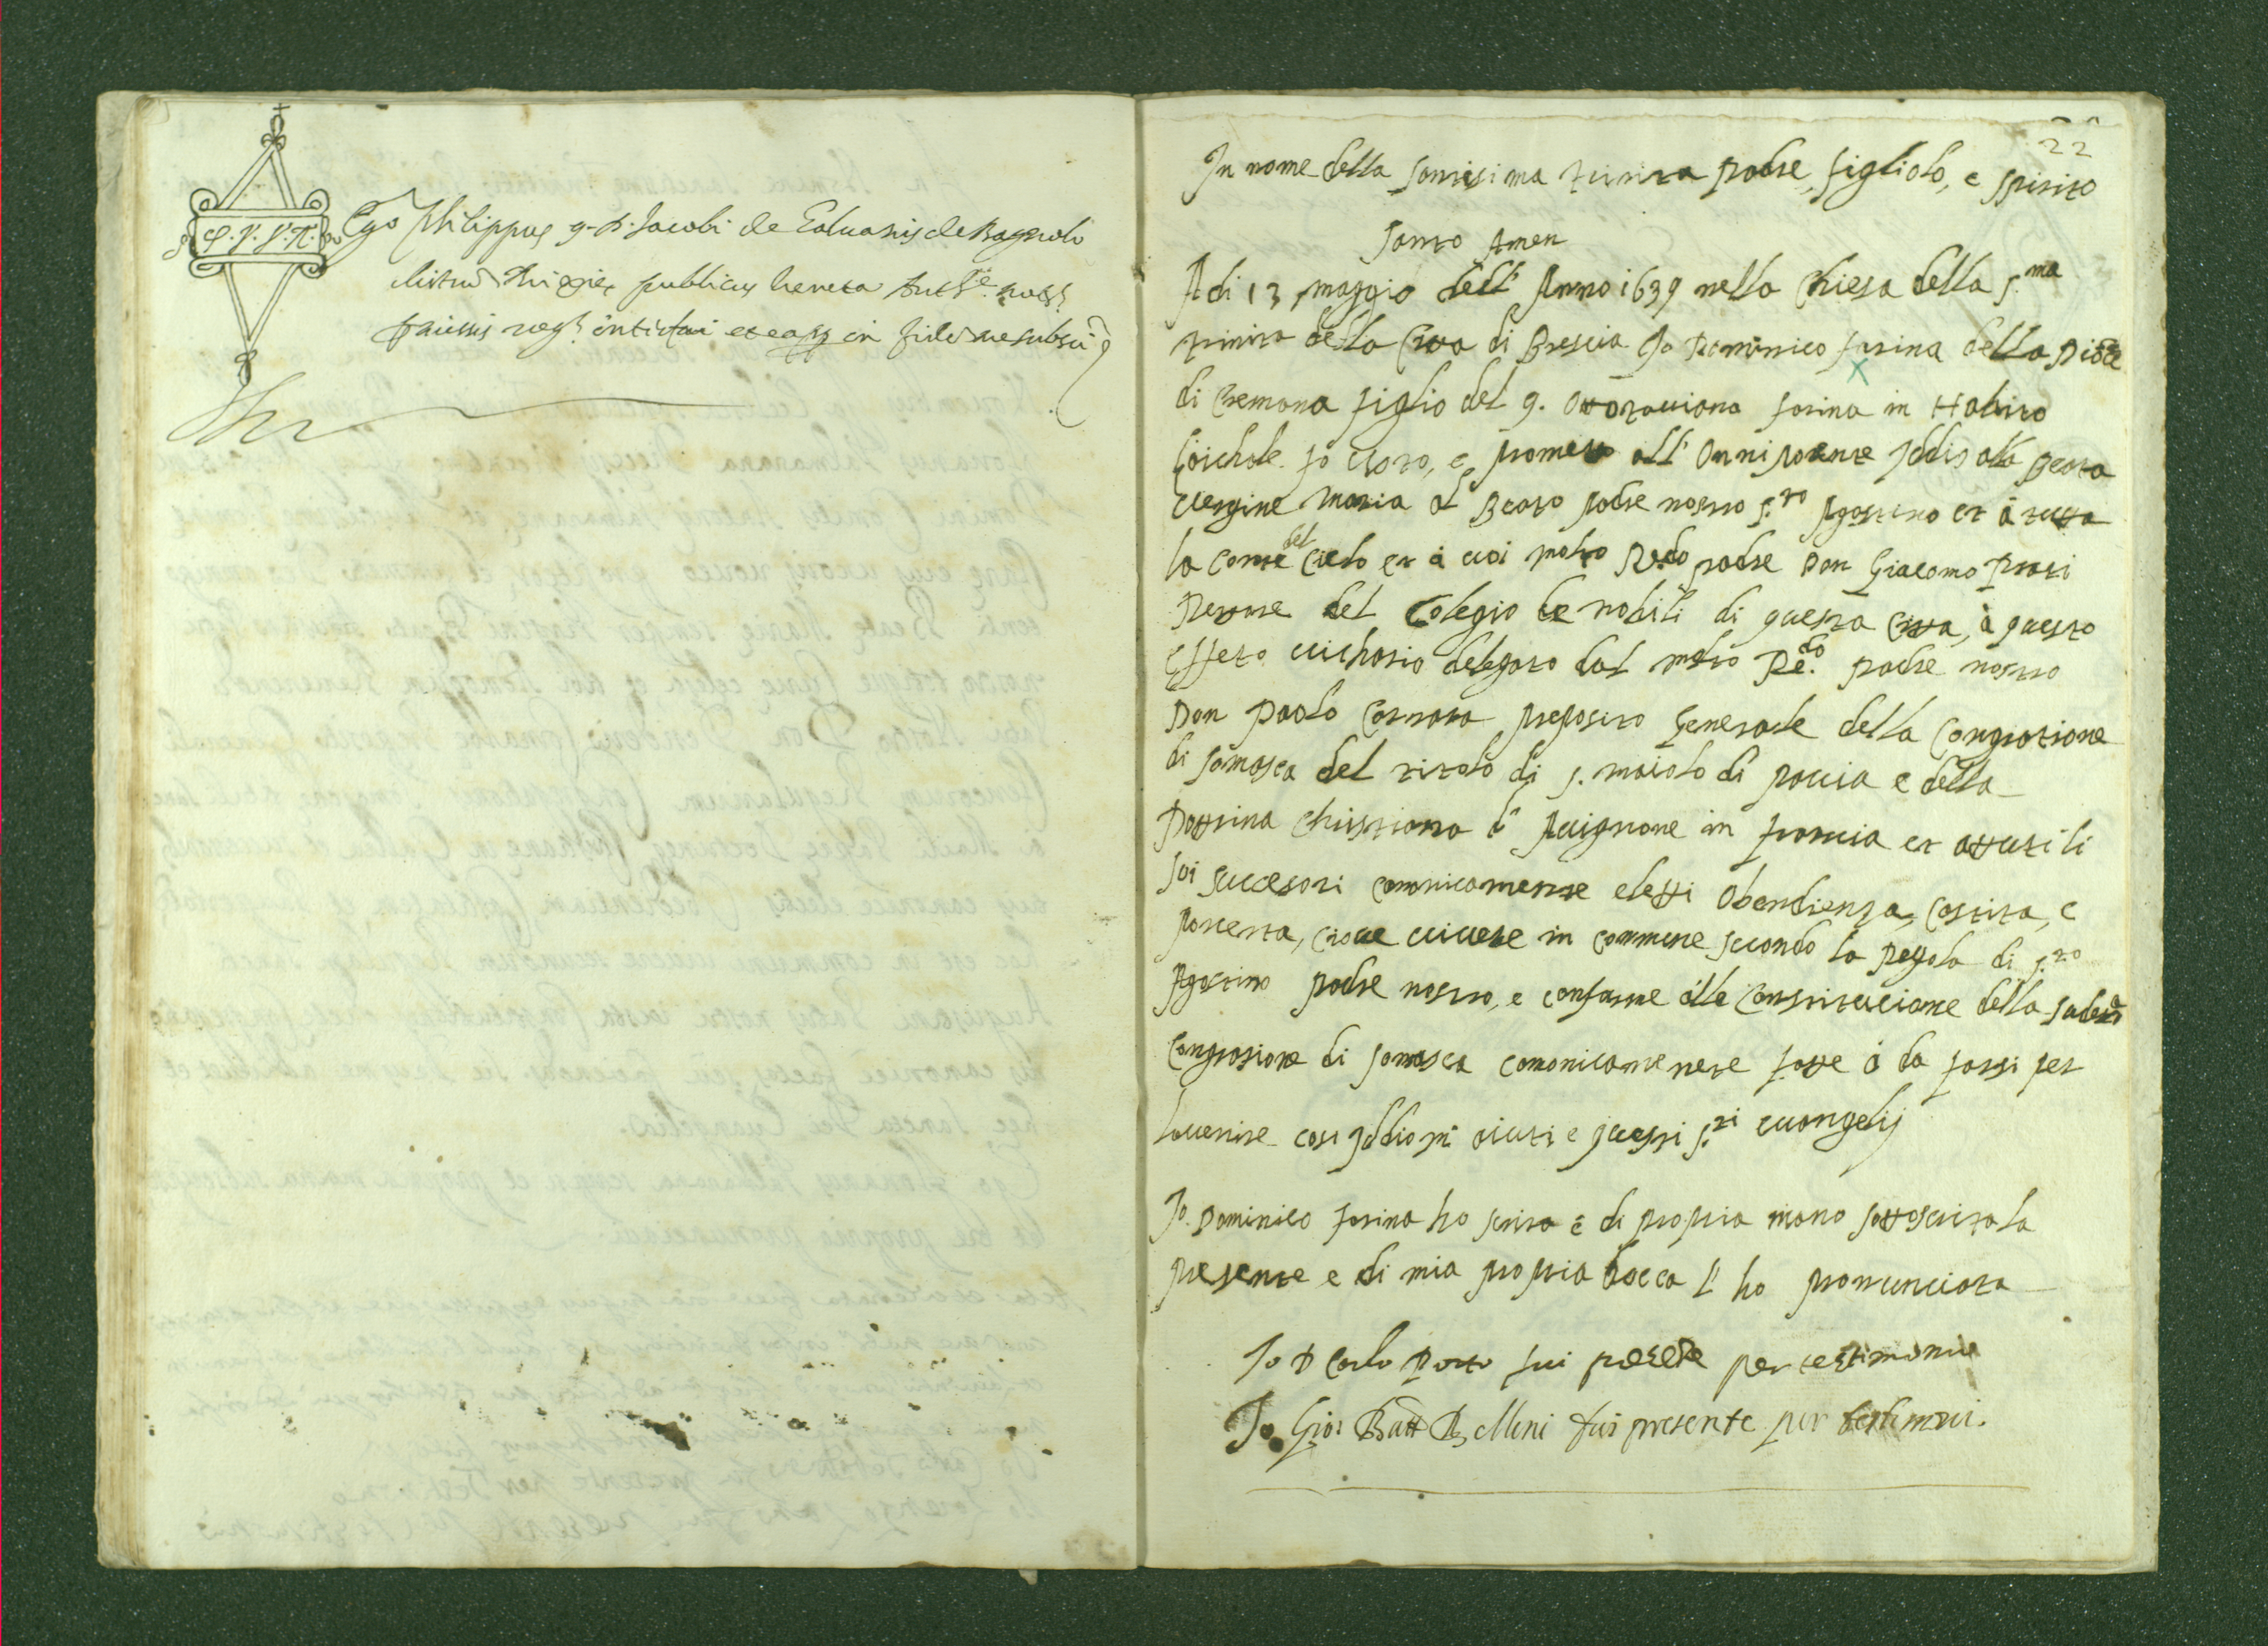 Ego Philippus q. D. Jacobi de Calvanis de Bagnolo
publicus Veneta
in fidem me subscri
22
In nome della santisima trinita padre, figliolo, e spirito
santo Amen
A di 13 maggio dell' Anno 1639 nella Chiesa della s.ma
trinita della Citta di Brescia Io Dominico farina della Dioce
di Cremona figlio del q. Ottaviano farina in Habito
Io Voto, e prometto all' Onnipotente Iddio alla Beata
Vergine Maria al Beato padre nostro s.to Agostino et à tutta
la Corte del Cielo et à voi molto R.do padre Don Giacomo
Retore del Colegio de nobili di questa Citta, à questo
Effeto vichario delegato dal molto Re.do padre nostro
Don Paolo Carrara preposito Generale della Congratione
di somasca del titolo di s. maiolo di pavia e della
Dottrina christiana d' Avignone in francia et attuti li
soi sucesori canonicamente eletti Obendienza, castita, e
poverta, cioue vivere in commune secondo la Regola di s.to
Agostino padre nostro, e conforme alle Constitucione della sudeta
Congrasione di somasca canonicamenete fatte ò da farsi per
lavenire cosi Iddio mi aiuti e questi s.ti evangelij
Io Dominico farina ho scrita e di propria mano sottoscrita la
presente e di mia propria bocca l' ho pronunciata
Io D Carlo fui presete per testimonio
Io Gio: Batt Bellini fui presente per testimoni.